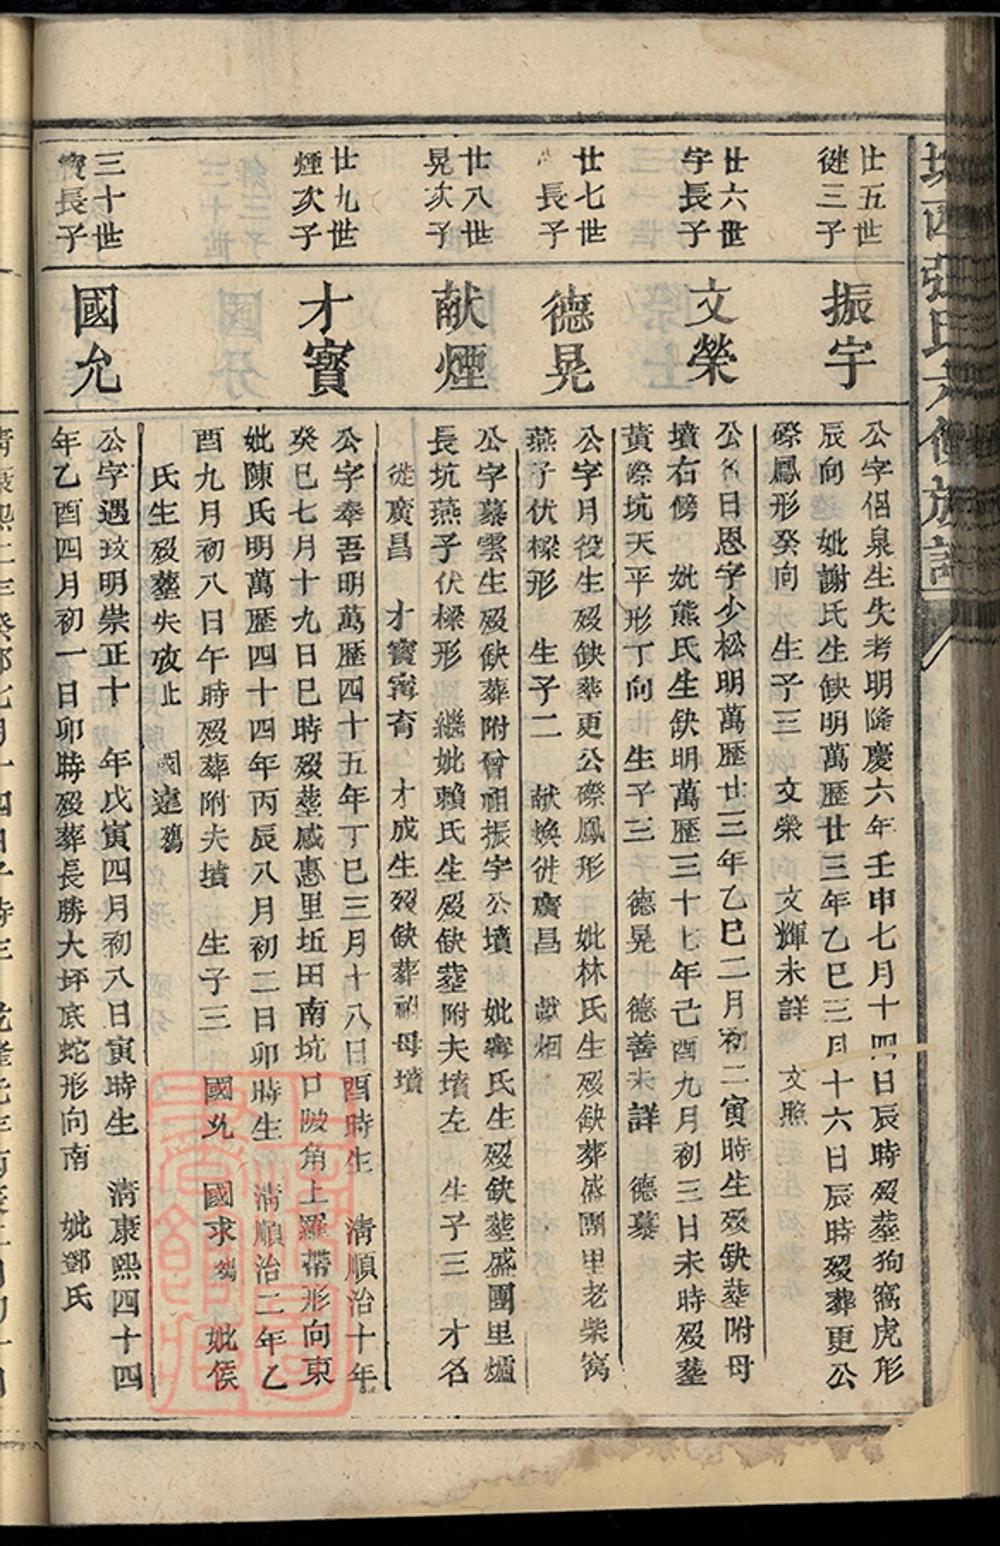 廿五世
徙三子
振宇
公字侶泉生失考明隆慶六年壬申七月十四日辰時殁塟狗窩虎形
辰向 妣謝氏生缺明萬歷廿三年乙巳三月十六日辰時殁葬更公
磜鳳形癸向 生子三 文榮 文輝未詳 文照
廿六世
宇長子
文榮
公名日恩字少松明萬歷廿三年乙巳二月初二寅時生殁缺塟附母
墳右傍 妣熊氏生缺明萬歷三十七年己酉九月初三日未時殁塟
黃磜坑天平形丁向 生子三 德晃 德善未詳 德慕
廿七世
長子
德晃
公字月役生殁缺塟更公磜鳳形 妣林氏生殁缺葬盛團里老柴窩
燕子伏樑形 生子二 献煥徙廣昌 献烟
廿八世
晃次子
献煙
公字慕雲生殁缺葬附曾祖振宇公墳 妣寗氏生殁缺塟盛團里爐
長坑燕子伏樑形 繼妣賴氏生殁缺塟附夫墳左 生子三 才名
徙廣昌 才寳寗育 才成生殁缺葬祖母墳
廿九世
煙次子
才寳
公字奉吾明萬歷四十五年丁巳三月十八日酉時生 淸順治十年
癸巳七月十九日巳時殁塟感惠里坵田南坑口陂角上羅帶形向東
妣陳氏明萬歷四十四年丙辰八月初二日卯時生 淸順治二年乙
酉九月初八日午時殁葬附夫墳 生子三 國允 國求殤 妣侯
氏生殁塟失攷止 國達殤
三十世
寳長子
國允
公字遇玟明崇正十 年戊寅四月初八日寅時生 淸康熙四十四
年乙酉四月初一日卯時殁葬長勝大坪底蛇形向南 妣鄧氏